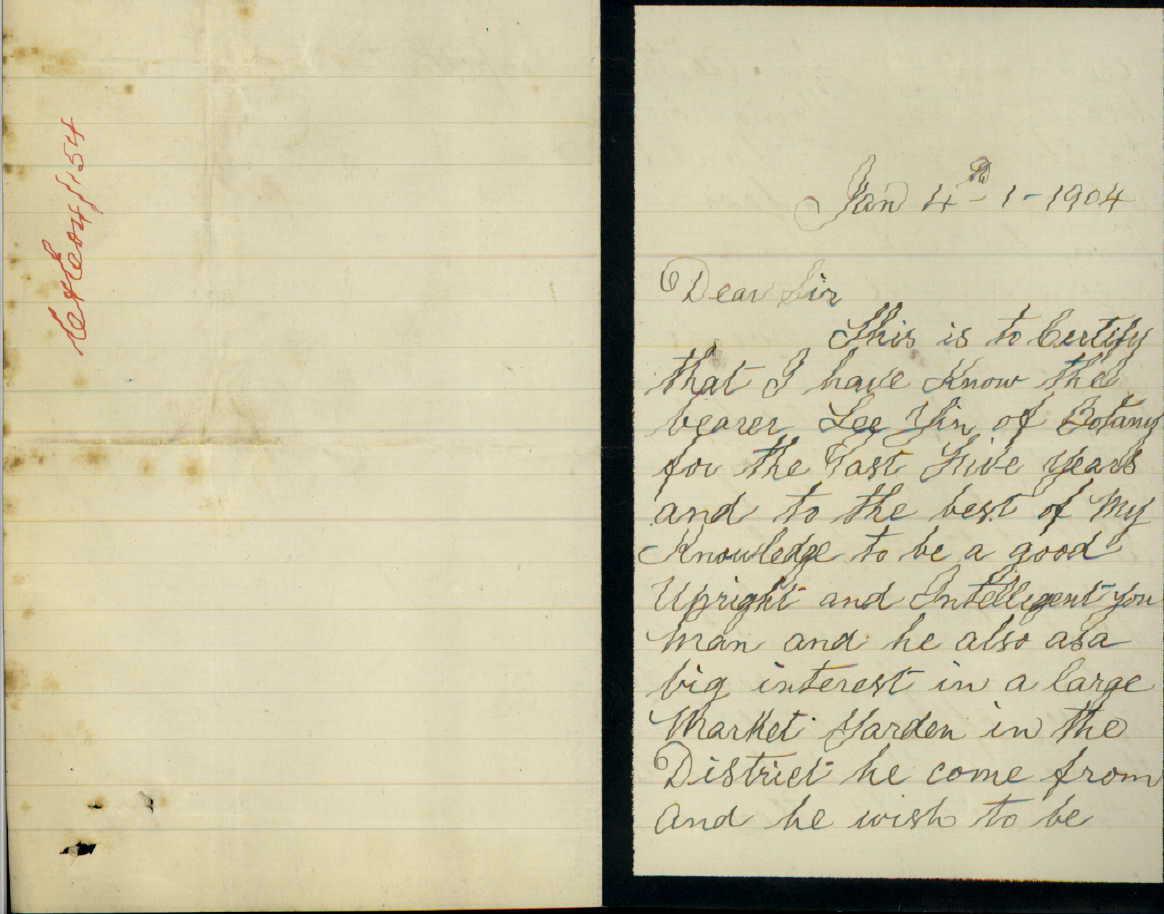 Jan 4th - 1 - 1904
Dear Sir
This is to Certify
that I have Know the
bearer Lee Yin of Botany
for the Past Five years
and to the best of My
Knowledge to be a good
Upright and Intelligent you
Man and he also as a
big interest in a large
Market Garden in the
District he come from
and he wish to be